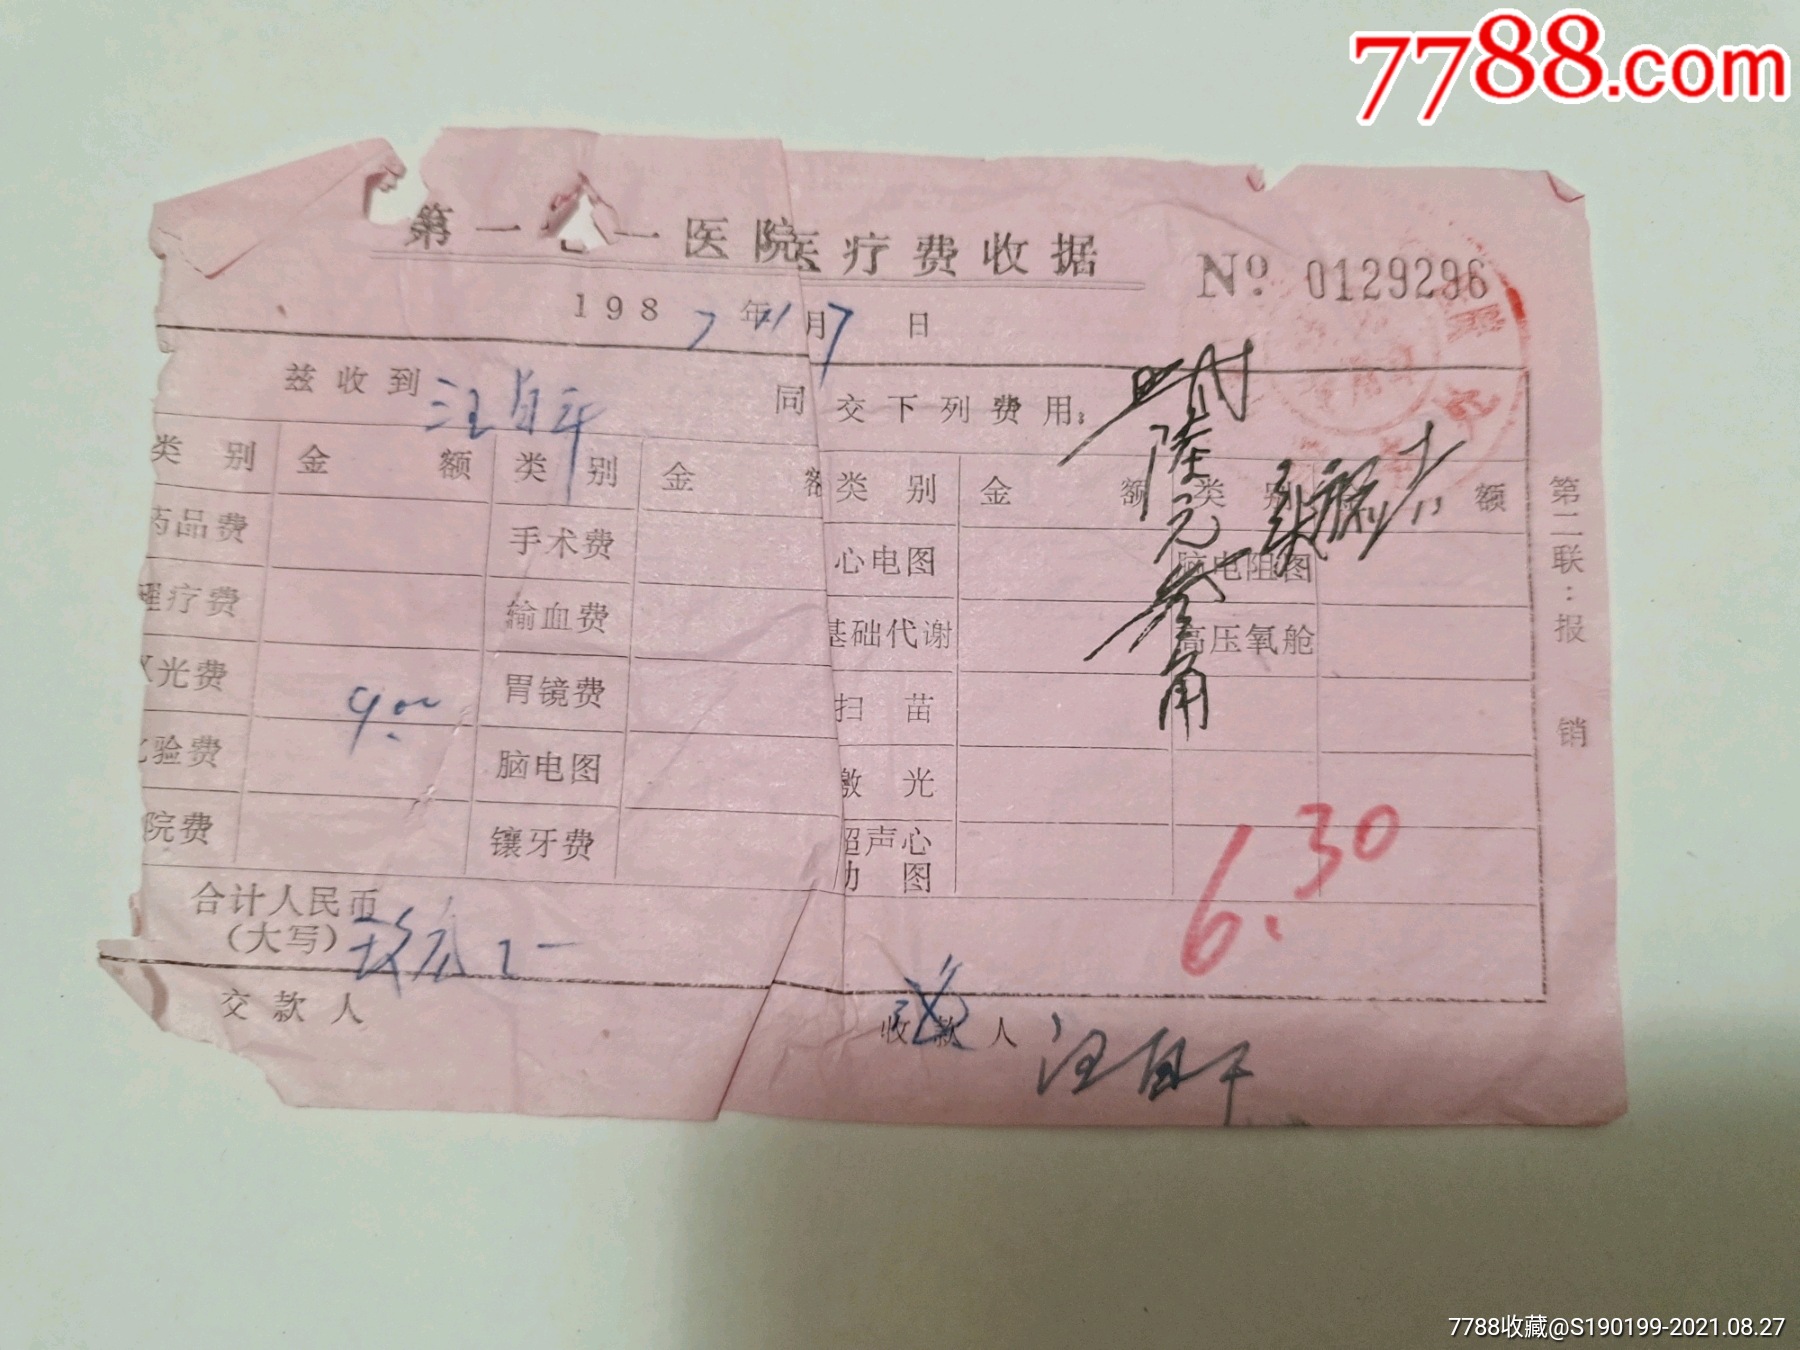 7788.com
第一 一医院医疗费收据
No 0129296
1987年11月7日
兹收到 汪自平 同 交下列费用:
类别 金额 类别 金额 类别 金额 类别 额
药品费 手术费 心电图 脑电阻图
理疗费 输血费 基础代谢 高压氧舱
X光费 9.00 胃镜费 扫苗
化验费 脑电图 激光
院费 镶牙费 超声心动图
合计人民币
(大写) 玖元
交款人 收款人
第二联:报销
陆元叁角
6.30
汪自平
7788收藏@S190199-2021.08.27